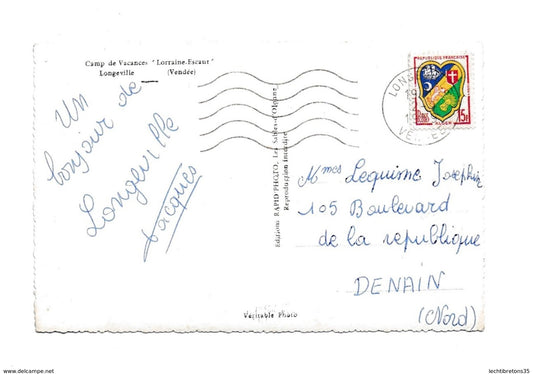 Camp de Vacances "Lorraine-Escaut"
Longeville (Vendée)
Un
bonjour de
Longeville
Jacques
Edition: RAPID'PHOTO, Les Sables-d'Olonne
Reproduction Interdite
Véritable Photo
REPUBLIQUE FRANÇAISE
15F
ALGER
Mmes Lequime Josephine
105 Boulevard
de la republique
DENAIN
(Nord)
www.delcampe.net
lechtibretons35